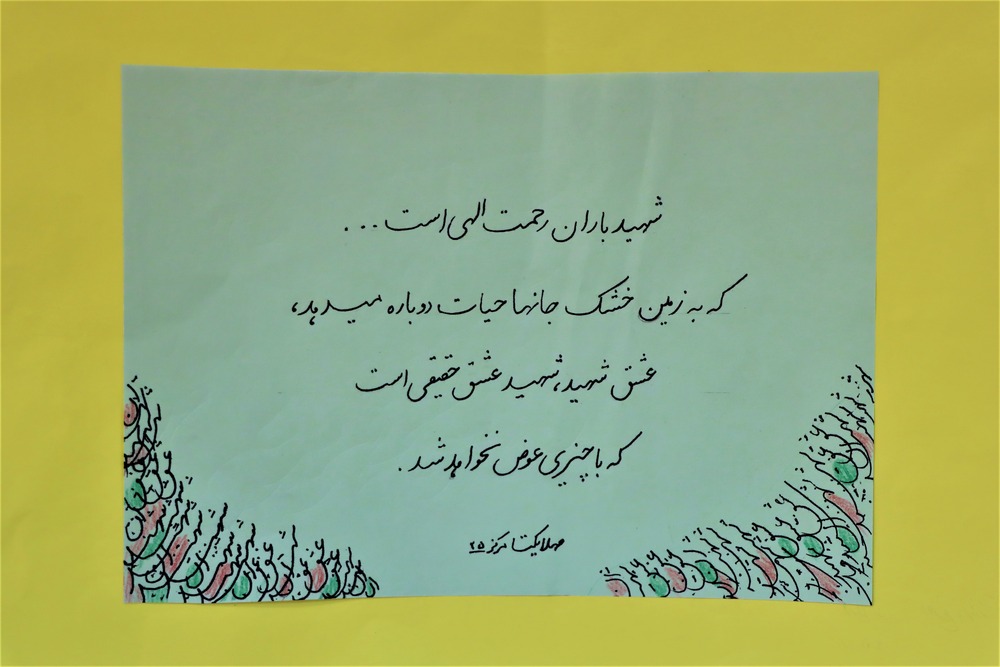 شهید باران رحمت الهی است...
که به زمین خشک جانها حیات دوباره میدهد،
عشق شهید، شهید عشق حقیقی است
که با چیزی عوض نخواهد شد.
مهلا یکتا مرکز ۲۵